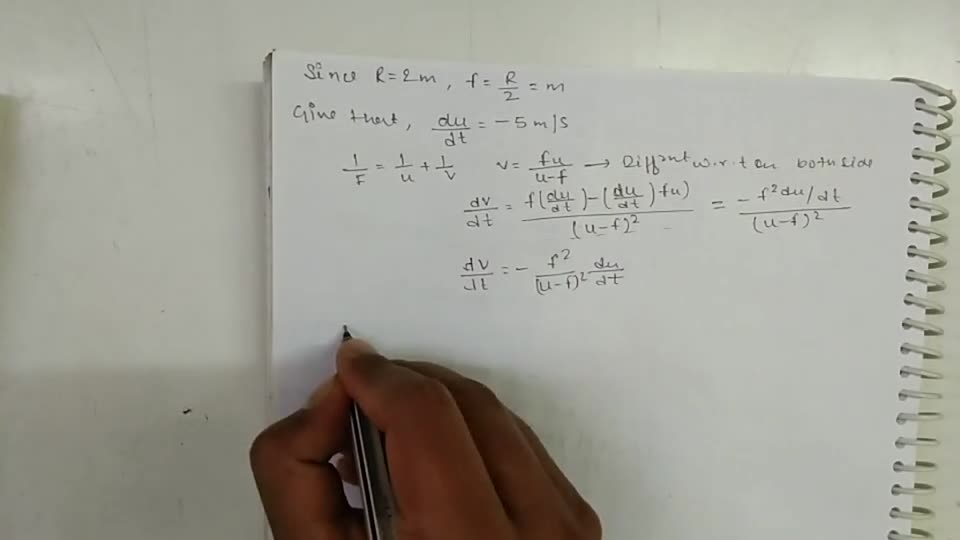 Since R=2m, f=R/2=m
Give that, du/dt=-5m/s
1/F=1/u+1/v v=fu/u-f → Diffant w.r.t on both side
dv/dt=f(du/dt)-(du/dt)fu)/(u-f)²=-f²du/dt/(u-f)²
dv/dt=-f²/(u-f)² du/dt